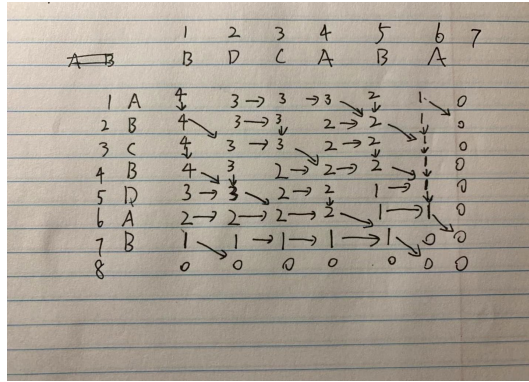 1 2 3 4 5 6 7
B D C A B A
1 A 4 3 → 3 → 3 2 1 0
2 B 4 3 → 3 2 → 2 1 0
3 C 4 3 → 3 2 → 2 1 0
4 B 4 3 2 → 2 → 2 1 0
5 D 3 → 3 2 → 2 1 → 1 0
6 A 2 → 2 → 2 → 2 1 → 1 0
7 B 1 1 → 1 → 1 → 1 0 0
8 0 0 0 0 0 0 0